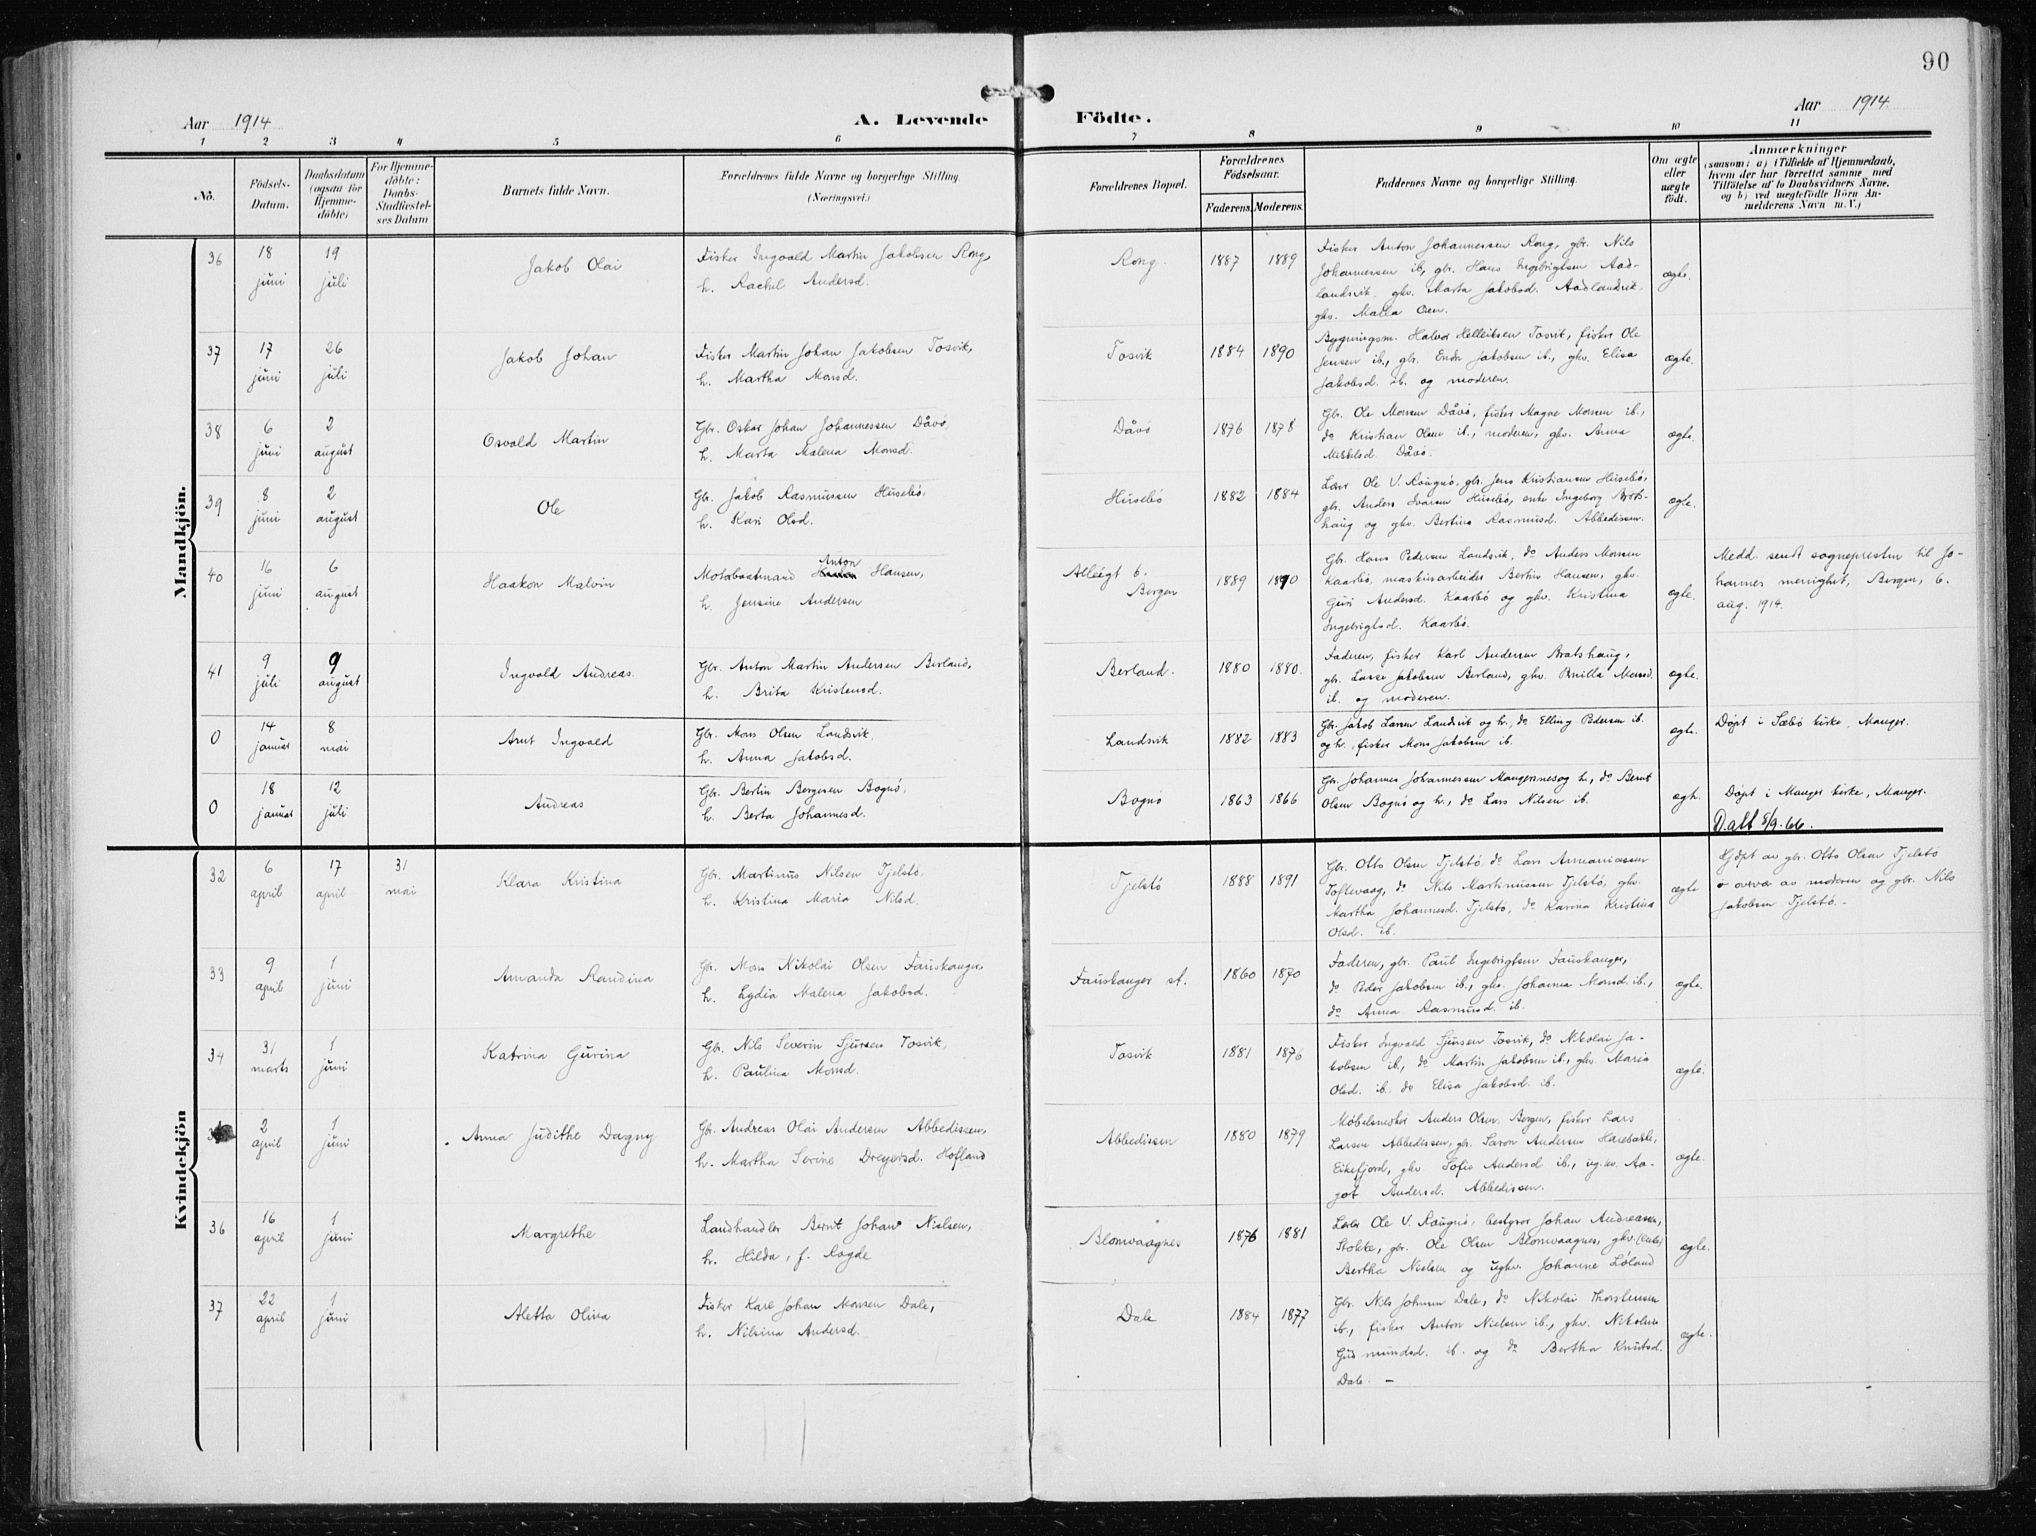 90
Aar 1914 A. Levende Födte. Aar 1914
1 2 3 4 5 6 7 8 9 10 11
No.
Födsels-
Datum.
Daabsdatum
(ogsaa for
Hjemme-
döbte)
For Hjemme-
döbte:
Daabs-
Stadfæstel-
ses Datum
Barnets fulde Navn.
Forældrenes fulde Navne og borgerlige Stilling.
(Næringsvei.)
Forældrenes Bopæl.
Forældrenes
Födselsaar.
Faderens. Moderens.
Faddernes Navne og borgerlige Stilling.
Om ægte
eller
uægte
födt.
Anmærkninger
(saasom: a) i Tilfælde af Hjemmedaab,
hvem der har forrettet samme med
Tilföielse af to Daabsvidners Navne,
og b) ved uægtefödte Börn An-
melderens Navn m. V.)
Mandkjön.
36
18
juni
19
juli
Jakob Olai
Fisker Ingvald Martin Jakobsen Rong,
h. Rachel Andersd.
Rong.
1887 1889
Fisker Anton Johannessen Rong, gbr. Nils
Johannessen ib, gbr. Hans Ingebrigtsen Aad-
landsvik, gkv. Marta Jakobsd. Aadlandsvik
gkv. Malla Osen.
ægte.
37
17
juni
26
juli
Jakob Johan
Fisker Martin Johan Jakobsen Tosvik,
h. Martha Monsd.
Tosvik
1884 1890
Bygningsm. Halvor Helleiksen Tosvik, fisker Ole
Jensen ib., gbr. Endr Jakobsen ib., gkv. Elisa
Jakobsd. ib. og moderen.
ægte.
38
6
juni
2
august
Osvald Martin
Gbr. Oskar Johan Johannessen Dåvø,
h. Marta Malena Monsd.
Dåvø
1876 1878
Gbr. Ole Monsen Dåvø, fisker Magne Monsen ib.,
do Kristian Olsen ib., moderen, gkv. Anna
Mikkelsd. Dåvø.
ægte.
39
8
juni
2
august
Ole
Gbr. Jakob Rasmussen Husebø,
h. Kari Olsd.
Husebø
1882 1884
Lærer Ole V. Rougnø, gbr. Jens Kristiansen Husebø,
gbr. Anders Ivarsen Husebø, enke Ingeborg Brats-
haug og gkv. Bertina Rasmusd. Abbedissen.
ægte.
40
16
juni
6
august
Haakon Malvin
Motorbaatmand Anton Hansen,
h. Jensine Andersen
6.
Bergen
1889 1890
Gbr. Hans Pedersen Landsvik, do Anders Monsen
Kaarbø, maskinarbeider Bertin Hansen, gkv.
Guri Andersd. Kaarbø og gkv. Kristina
Ingebrigtsd. Kaarbø.
ægte.
Medd. sendt sogneprester til Jo-
hannes menighet, Bergen, 6.
aug. 1914.
41
9
juli
9
august
Ingvald Andreas.
Gbr. Anton Martin Andersen Berland,
h. Brita Kristensd.
Berland.
1880 1880.
Faderen, fisker Karl Andersen Bratshaug,
gbr. Lasse Jakobsen Berland, gkv. Pernilla Monsd.
ib. og moderen.
ægte.
0
14
januar
8
mai
Arnt Ingvald
Gbr. Mons Olsen Landsvik,
h. Anna Jakobsd.
Landsvik
1882 1883
Gbr. Jakob Larsen Landsvik og h., do Elling Pedersen ib.
og h., fisker Mons Jakobsen ib.
ægte.
Døpt i Sæbø kirke, Manger.
0
18
januar
12
juli
Andreas
Gbr. Bertin Bergesen Bognø,
h. Berta Johannesd.
Bognø
1863 1866
Gbr. Johannes Johannessen Mangersnes og h., do Bernt
Olsen Bognø og h., do Lars Nilsen ib.
ægt.
Døpt i Manger kirke, Manger.
D.att 8/9.66.
Kvindekjön
32
6
april
17
april
31
mai
Klara Kristina
Gbr. Martinus Nilsen Tjelstø,
h. Kristina Maria Nilsd.
Tjelstø
1888 1891
Gbr. Otto Olsen Tjelstø, do Lars Annaniassen
Toftevaag, do Nils Martinussen Tjelstø, gkv.
Martha Johannesd. Tjelstø, do Karina Kristina
Olsd. ib.
ægte
Hjdpt av gbr. Otto Olsen Tjelstø
i overvær av moderen og gbr. Nils
Jakobsen Tjelstø. -
33
9
april
1
juni
Amanda Randina
Gbr. Mons Nikolai Olsen Fauskanger,
h. Lydia Malena Jakobsd.
Fauskanger st.
1860 1870
Faderen, gbr. Paul Ingebrigtsen Fauskanger,
do Peder Jakobsen ib., gkv. Johanna Monsd. ib.,
do Anna Rasmusd. ib.
ægte.
34
31
marts
1
juni
Katrina Gurina
Gbr. Nils Severin Sjursen Tosvik,
h. Paulina Monsd.
Tosvik
1881 1876
Fisker Ingvald Sjursen Tosvik, do Nikolai Ja-
kobsen ib., do Martin Jakobsen ib., gkv. Maria
Olsd. ib. do Elisa Jakobsd. ib.
ægte.
2
april
1
juni
Anna Judithe Dagny
Gbr. Andreas Olai Andersen Abbedissen,
h. Martha Serine Dreyersd. Hofland
Abbedissen
1880 1879
Møbelsnekker Anders Olsen, Bergen, fisker Lars
Larsen Abbedissen, gbr. Saron Andersen Harebakke,
Eikefjord, gkv. Sofie Andersd ib., ug.kv. Aa-
got Andersd. Abbedissen.
ægte.
36
16
april
1
juni
Margrethe
Landhandler Bernt Johan Nielsen,
h. Hilda, f. Rogde
Blomvaagnes
1876 1881
Lærer Ole V. Rougnø, bestyrer Johan Andreassen,
Stokke, gbr. Ole Olsen Blomvaagnes, gkv. (enke)
Bertha Nielsen og ugkv. Johanne Løland
ægte.
37
22
april
1
juni
Aletta Olina
Fisker Karl Johan Monsen Dale,
h. Nilsina Andersd.
Dale
1884 1877
Gbr. Nils Johnsen Dale, do Nikolai Thorstensen
ib., fisker Anton Nielsen ib., gkv. Nikoline
Gudmundsd. ib. og do Bertha Knutsd.
Dale. -
ægte.